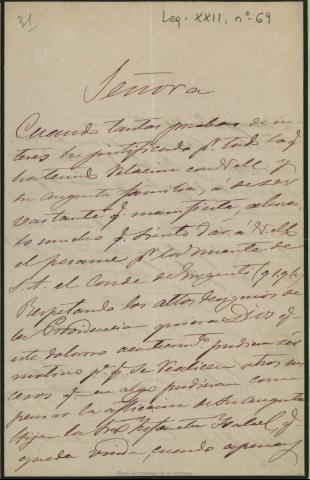 31
Leg. XXII, nº 69
Señora
Cuando tantas pruebas de in-
teres he justificado pr. todo lo q.
ha tenido relacion con V. M. y
su augusta familia, á de ser
vastante q. manifieste ahora
lo mucho q. siento dár á V. M.
el pesame pr. la muerte de
S. A. el Conde de Girgenti (q. g. h.)
Respetando los altos designios de
la Providencia quiera Dios q.
este doloroso acontecimto. pudiera sér
motivo pa. q. se realicen otros su-
cesos q. en algo pudieran com-
pensar la afliccion de su augusta
hija la Sra. Infanta Isabel, q.
queda viuda, cuando apenas
Real Academia de la Historia